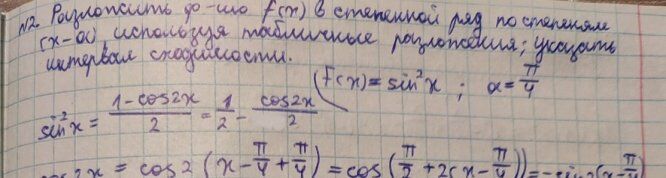 N2. Разложить ф-цию f(x) в степенной ряд по степеням
(x-a), используя табличные разложения; указать
интервал сходимости.
f(x) = sin²x ; a = π/4
sin²x = (1-cos2x)/2 = 1/2 - cos2x/2
cos2x = cos2(x - π/4 + π/4) = cos(π/2 + 2(x - π/4)) = -sin2(x-π/4)